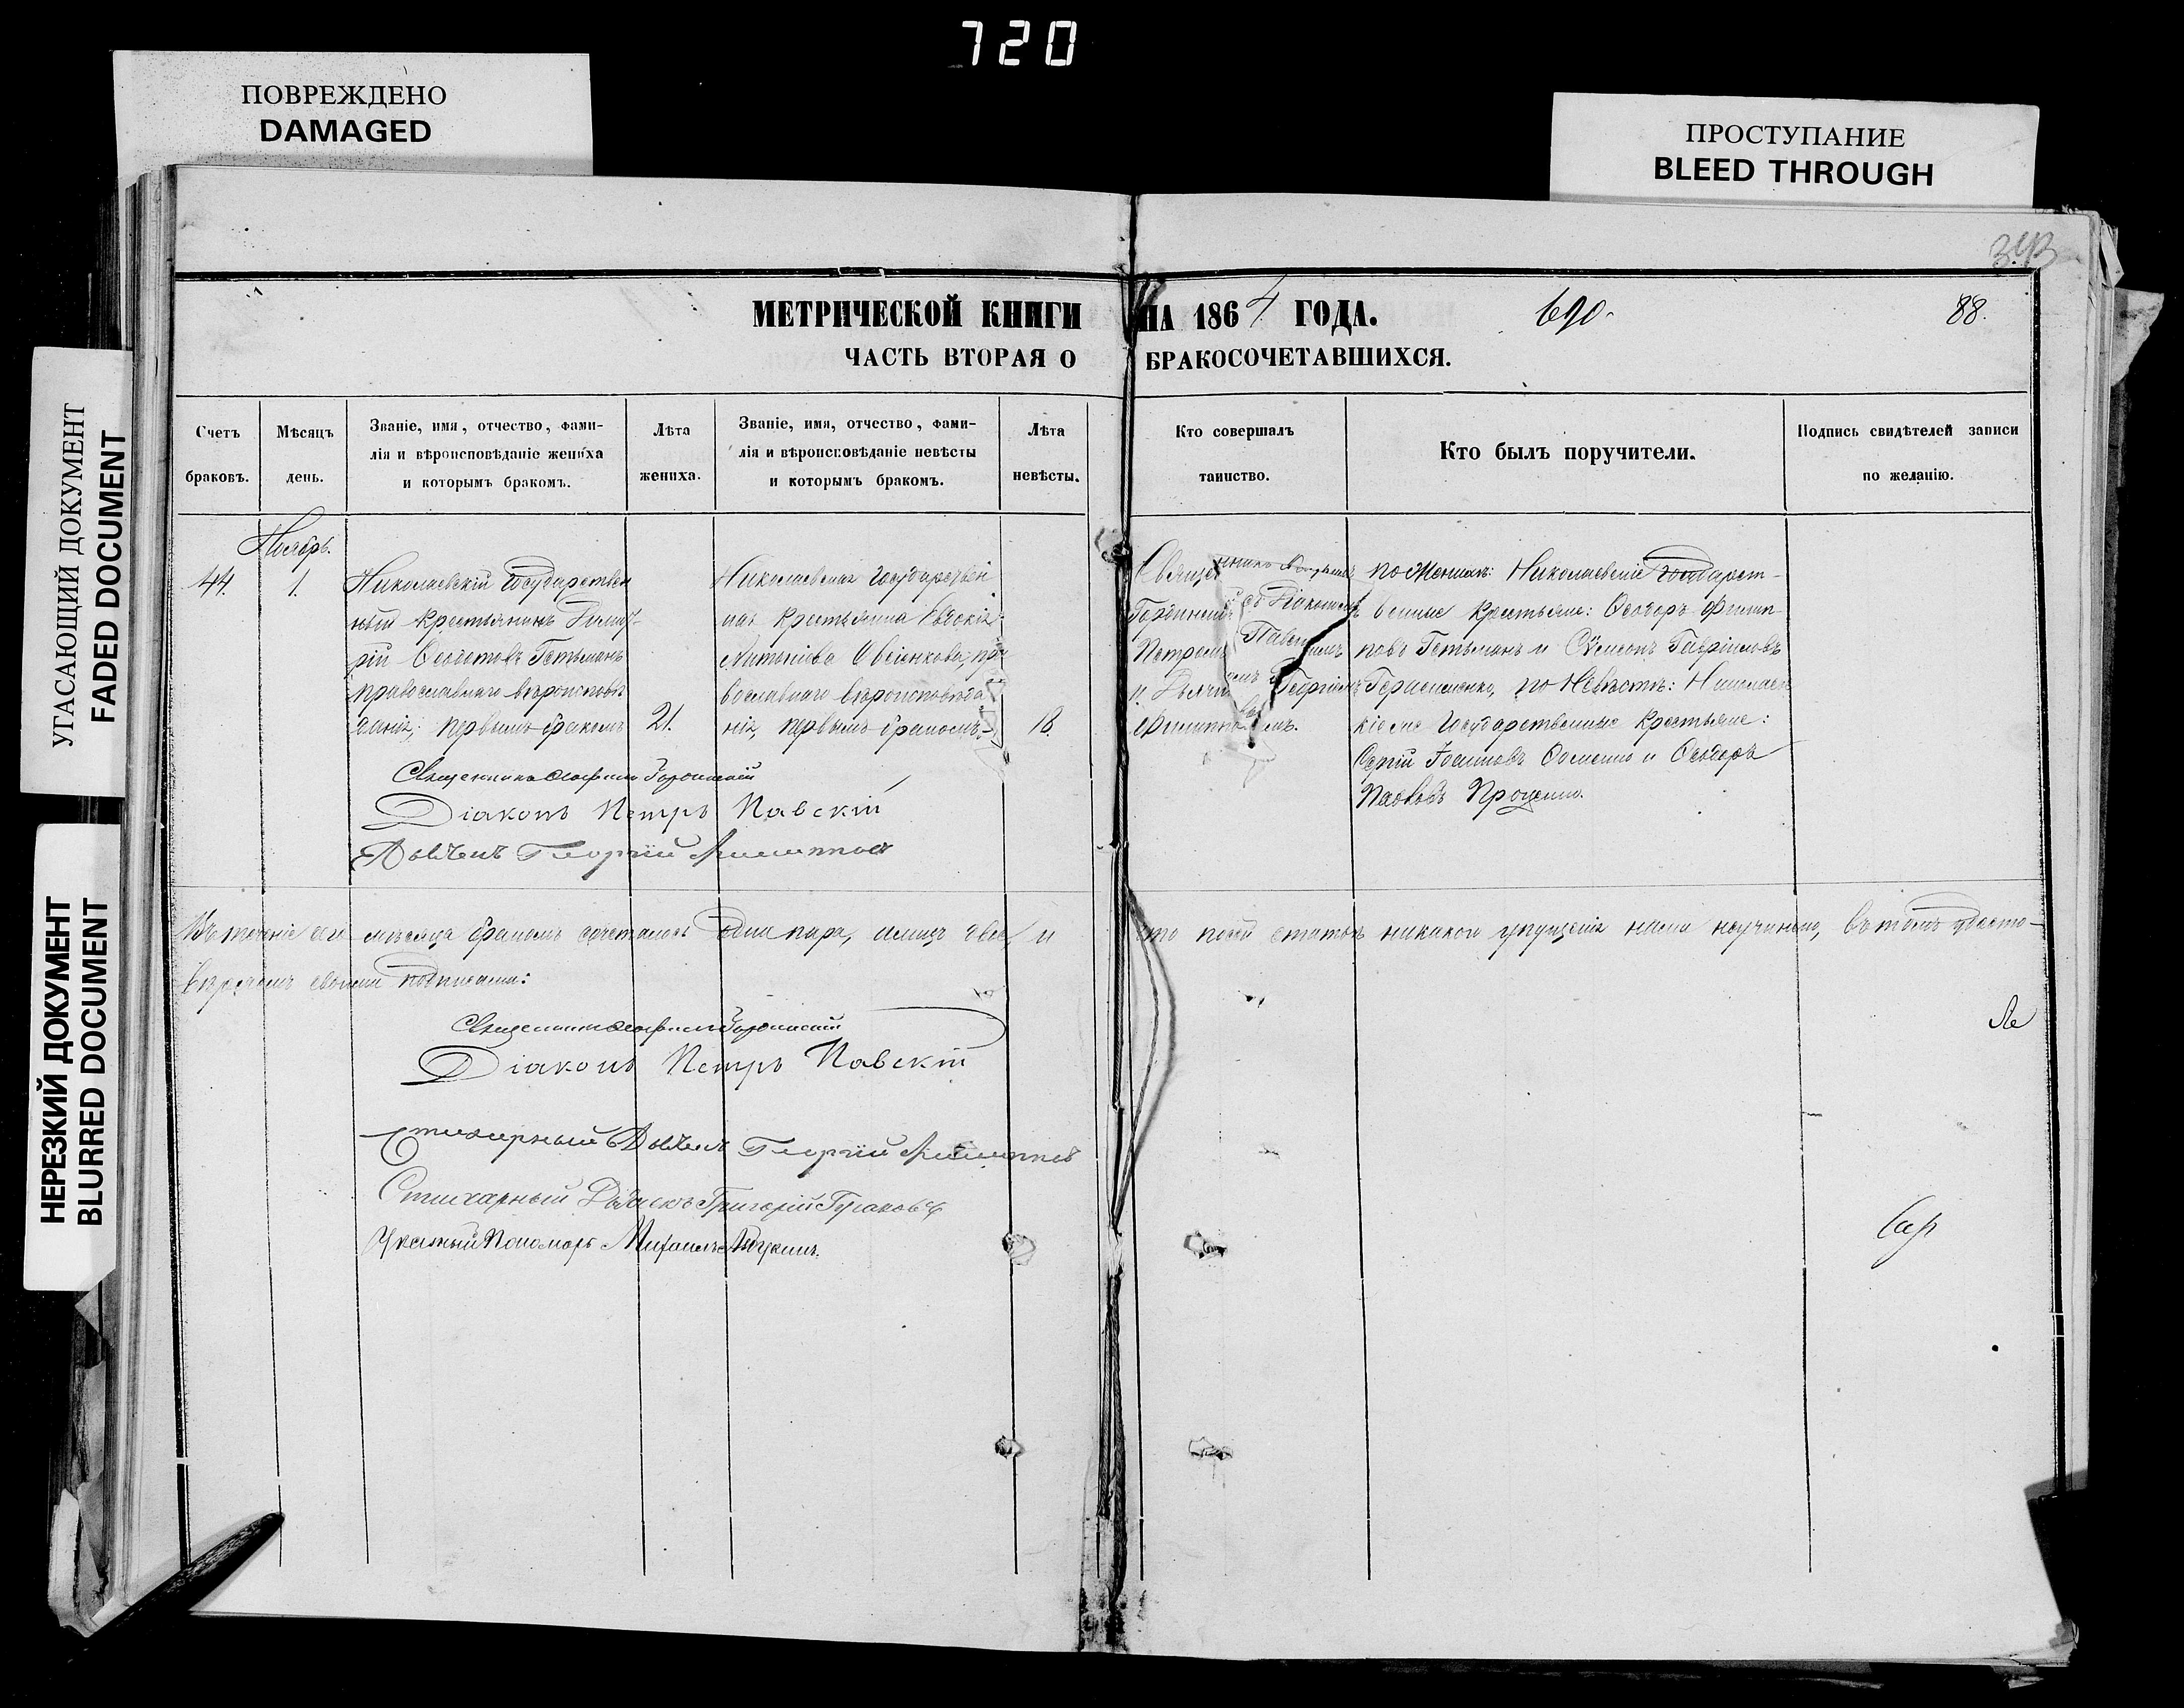 720
ПОВРЕЖДЕНО
DAMAGED
ПРОСТУПАНИЕ
BLEED THROUGH
УГАСАЮЩИЙ ДОКУМЕНТ
FADED DOCUMENT
НЕРЕЗКИЙ ДОКУМЕНТ
BLURRED DOCUMENT
343
МЕТРИЧЕСКОЙ КНИГИ НА 1864 ГОДА.
690.
88.
ЧАСТЬ ВТОРАЯ О БРАКОСОЧЕТАВШИХСЯ.
Счетъ
браковъ.
Мѣсяцъ
день.
Званіе, имя, отчество, фами-
лія и вѣроисповѣданіе жениха
и которымъ бракомъ.
Лѣта
жениха.
Званіе, имя, отчество, фами-
лія и вѣроисповѣданіе невѣсты
и которымъ бракомъ.
Лѣта
невѣсты.
Кто совершалъ
таинство.
Кто былъ поручители.
Подпись свидѣтелей записи
по желанію.
Ноябрь.
44.
1.
Николаевскій Государствен
ный крестьянинъ Димит-
рій Ѳедотовъ Гетьманъ
православнаго вѣроисповѣ
данія, первымъ бракомъ
21.
Николаевская Государствен
ная крестьянка Евдокія
Антоніева Овсіенкова, пра
вославнаго вѣроисповѣда
нія, первымъ бракомъ.
18.
Священникъ
съ Діакономъ
Петромъ Павскимъ
и Дьячкомъ Георгіемъ
Филипповымъ.
по Женихѣ: Николаевскіе Государст-
венные крестьяне: Ѳеодоръ Филип
повъ Гетьманъ и Симеонъ Гавріиловъ
Герасименко, по Невѣстѣ: Николаев
кіе же Государственные крестьяне:
Сергій Іоанновъ и Ѳеодоръ
Павловъ Проценко.
Священникъ
Діаконъ Петръ Павскій
Дьячекъ Георгій Филипповъ
Въ теченіе сего мѣсяца бракомъ сочеталась одна пара, лицъ двое, и что по сей статьѣ никакого упущенія нами неучинено, въ томъ удосто-
вѣряемъ своими подписами:
Священникъ
Діаконъ Петръ Павскій
Стихарный Дьячекъ Георгій Филипповъ
Стихарный Дьячекъ Григорій
Указный Пономарь Михаилъ